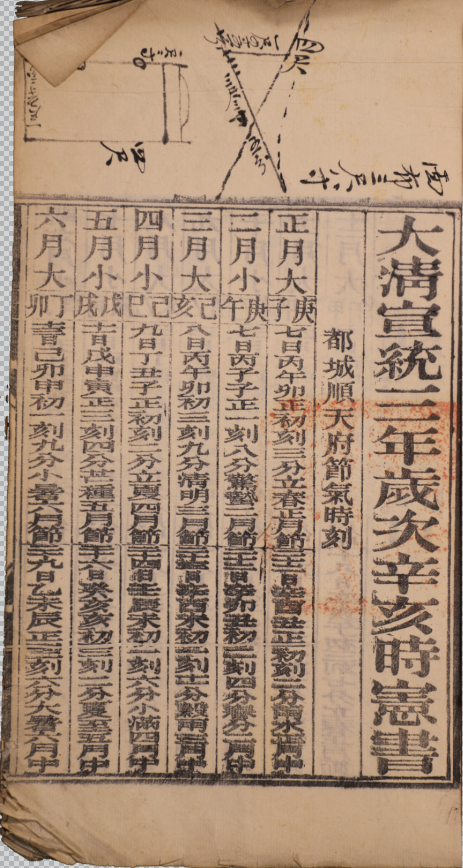 面布三尺八寸
四尺
大清宣統三年歲次辛亥時憲書
都城順天府節氣時刻
正月大庚子七日丙午卯正初刻三分立春正月節二十二日辛酉丑正初刻二分雨水正月中
二月小庚午七日丙子子正一刻八分驚蟄二月節二十二日辛卯丑初二刻四分春分二月中
三月大己亥八日丙午卯初二刻九分清明三月節二十三日辛酉未初二刻十二分穀雨三月中
四月小己巳九日丁丑子正初刻一分立夏四月節二十四日壬辰未初一刻六分小滿四月中
五月小戊戌十一日戊申寅正三刻四分芒種五月節二十六日癸亥亥初三刻二分夏至五月中
六月大丁卯十三日己卯申初一刻九分小暑六月節二十九日乙未辰正三刻六分大暑六月中